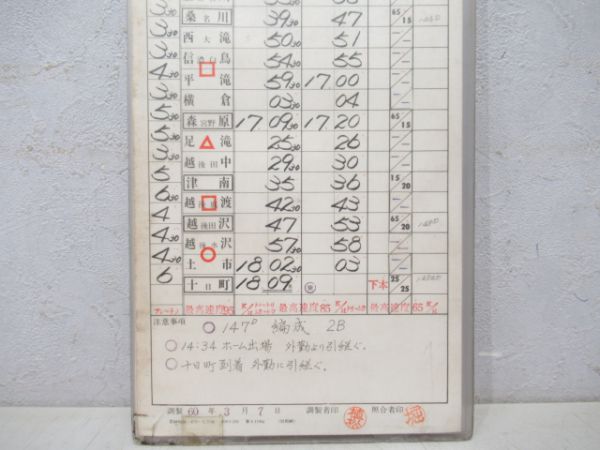 3 30 桑名川 39 30 47 65/15
3 30 西大滝 50 30 51
3 30 信濃白鳥 54 30 55
4 30 平滝 59 30 17 00
3 30 横倉 03 30 04
5 森宮野原 17 09 30 17 20 65/15
5 30 足滝 25 30 26
3 30 越後田中 29 30 30
5 津南 35 36 15/20
6 30 越後鹿渡 42 30 43
4 越後田沢 47 53 65/20
4 30 越後水沢 57 30 58
4 30 土市 18 02 30 03
6 十日町 18 09 下本 25/25
最高速度95 最高速度85 最高速度65
注意事項
147D 編成 2B
○14:34 ホーム出場 外勤より引継ぐ。
○十日町到着 外勤に引継ぐ。
調製 60年 3月 7日 調製者印 照合者印